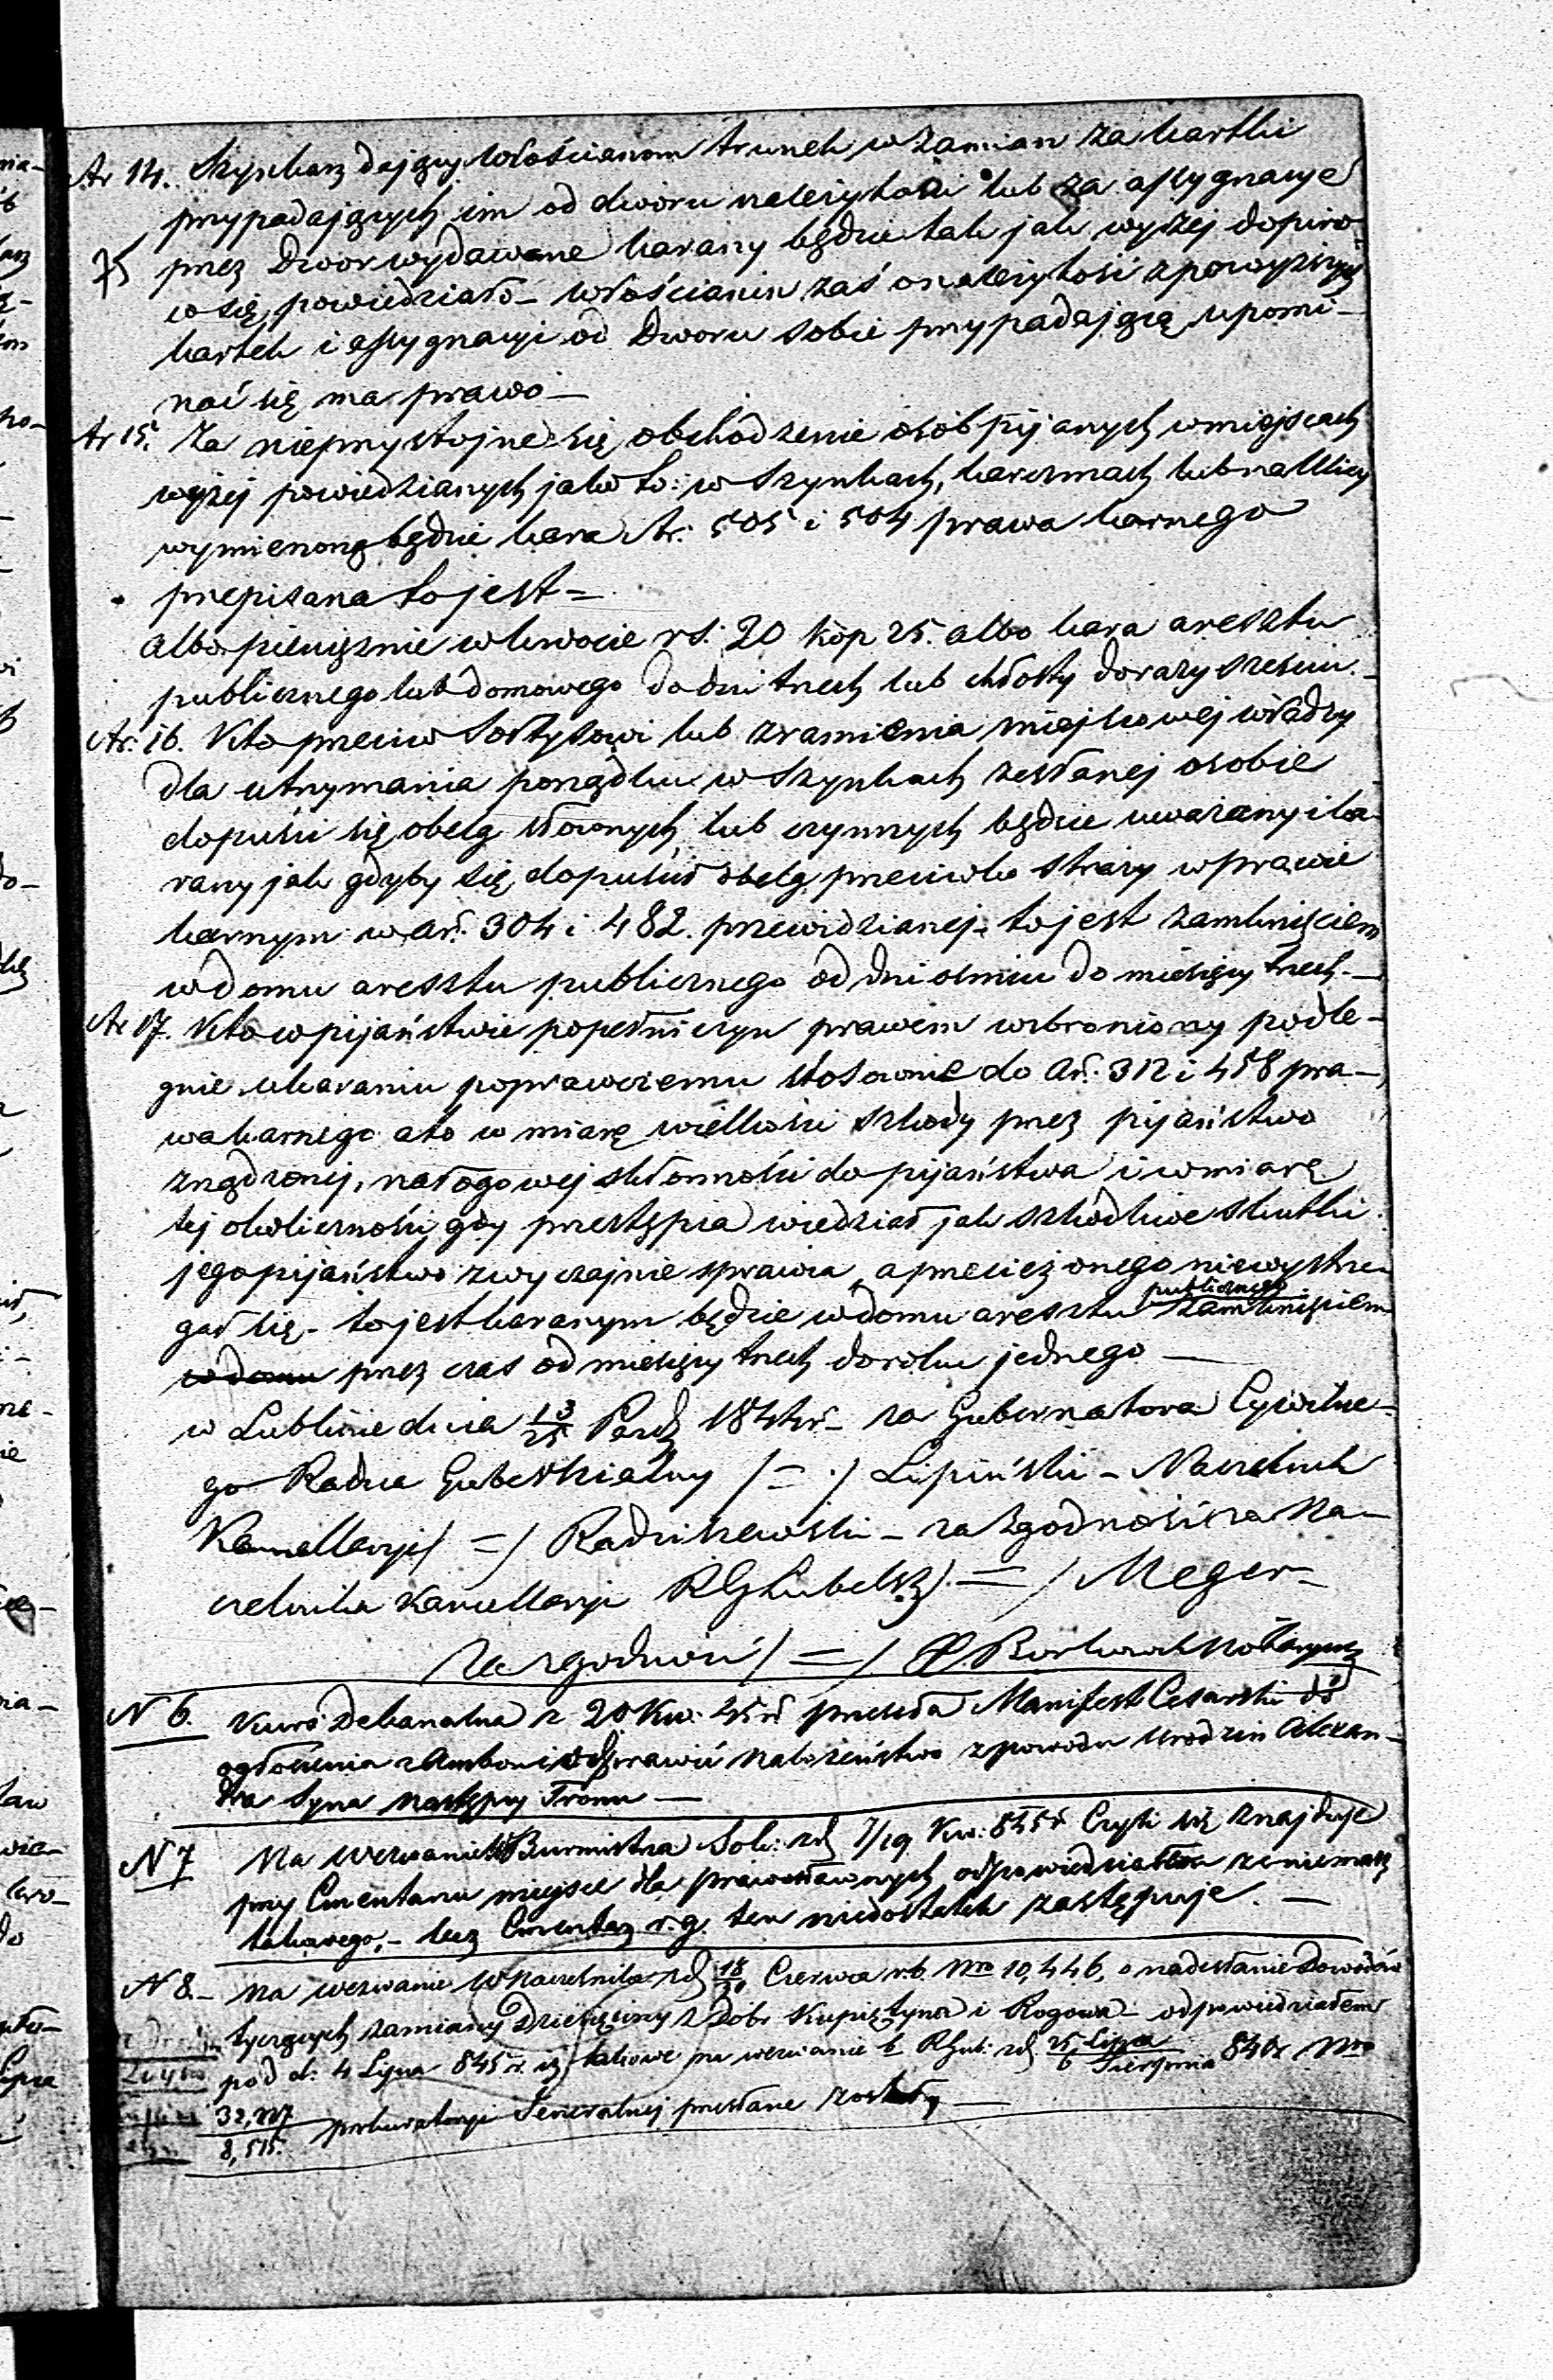 Ar 14. Szynkarz dający Włościanom trunek w zamian za kartki
przypadających im od dworu należytości lub za assygnacye
75 przez Dwór wydawane karany będzie tak jak wyżej dopiro
co się powiedziało – włościanin zaś o należytości z powyższych
kartek i assygnacyi od Dworu sobie przypadającą upomi-
nać się ma prawo –
Ar 15. Za nieprzystojne się obchodzenie osób pijanych w miejscach
wyżej powiedzianych jako to: w Szynkach, karczmach lub na Ulicy
wymienoną będzie kara Ar: 505 i 504 prawa karnego
przepisana to jest =
albo pieniężnie w kwocie rs: 20 kop 25. albo kara aresztu
publicznego lub domowego do dni trzech lub chłosty do razy sześciu. –
Ar: 16. Kto przeciw Sołtysowi lub z ramienia miejscowej władzy
dla utrzymania porządku w Szynkach zesłanej osobie
dopuści się obelg słownych lub czynnych będzie uważany i ka-
rany jak gdyby się dopuścił obelg przeciwko straży w prawie
karnym w ar: 304 i 482. przewidzianej – to jest zamknięciem
w domu aresztu publicznego od dni ośmiu do miesięcy trzech. –
Ar 17. Kto w pijaństwie popełni czyn prawem wzbroniony podle-
gnie ukaraniu poprawczemu stosownie do Ar: 312 i 458 pra-
wa karnego a to w miarę wielkości szkody przez pijaństwo
zrządzonej, nałogowej skłonności do pijaństwa i w miarę
tej okoliczności gdy przestępca wiedział jak szkodliwe skutki
jego pijaństwo zwyczajnie sprawia, a przecież onego nie wystrze-
gał się – to jest karanym będzie w domu aresztu publicznego zamknięciem
w domu przez czas od miesięcy trzech do roku jednego –
w Lublinie dnia 13/25 Paźdz 1844 r – za Gubernatora Cywilne-
go Radca Gubernialny /=./ Lipiński – Naczelnik
Kancellaryi /=/ Radziszewski – za zgodność za Na-
czelnika Kancellaryi RGLubelsk. /=/ Meger –
za zgodność /=/ Borkowski Notaryusz
N 6. Kurs: Dekanalna z 20 Kw: 45 r przesyła Manifest Cesarski do
ogłoszenia z Ambony i odprawić nabożeństwo z powodu urodzin Alexan-
dra Syna Następcy Tronu –
N 7 Na wezwanie Burmistrza Sok: z d 7/19 Kw: 845 r Czyli się znajduje
przy Cmentarzu miejsce dla prawosławnych odpowiedziałem że nie masz
takowego, – lecz Cmentarz r. g. ten niedostatek zastępuje. –
N 8. – Na wezwanie W Naczelnika z d 18/30 Czerwca r. b. Nro 10,446, o nadesłanie Dowodów
tyczących zamiany Dziesięciny z Dóbr Krupiec i Rogowa – odpowiedziałem
pod d: 4 Lipca 845 r. iż takowe na wezwanie RGub: z d 25 Lipca/6 Sierpnia 840 r Nro
32,227/8,515. prokuratoryi Jeneralnej przesłane zostały –